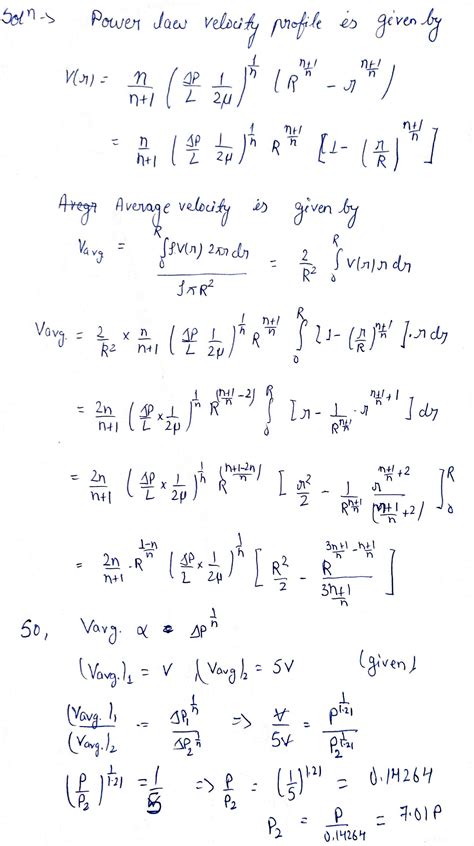 Solⁿ → Power law velocity profile is given by
V(r) = n/(n+1) (ΔP/L 1/2μ)^(1/n) (R^((n+1)/n) - r^((n+1)/n))
= n/(n+1) (ΔP/L 1/2μ)^(1/n) R^((n+1)/n) [1 - (r/R)^((n+1)/n)]
Average velocity is given by
Vavg = ∫₀ᴿ ρV(r) 2πr dr / ρπR² = 2/R² ∫₀ᴿ V(r) r dr
Vavg. = 2/R² × n/(n+1) (ΔP/L 1/2μ)^(1/n) R^((n+1)/n) ∫₀ᴿ [1 - (r/R)^((n+1)/n)] . r dr
= 2n/(n+1) (ΔP/L × 1/2μ)^(1/n) R^((n+1)/n - 2) ∫₀ᴿ [r - 1/R^((n+1)/n) . r^((n+1)/n + 1)] dr
= 2n/(n+1) (ΔP/L × 1/2μ)^(1/n) R^((n+1-2n)/n) [r²/2 - 1/R^((n+1)/n) r^((n+1)/n + 2) / ((n+1)/n + 2)]₀ᴿ
= 2n/(n+1) . R^((1-n)/n) (ΔP/L × 1/2μ)^(1/n) [R²/2 - R^((3n+1)/n - (n+1)/n) / ((3n+1)/n)]
So, Vavg. α ΔP^(1/n)
(Vavg.)₁ = V , (Vavg)₂ = 5V (given)
(Vavg.)₁/(Vavg.)₂ = ΔP₁^(1/n)/ΔP₂^(1/n) => V/5V = P^(1/1.21)/P₂^(1/1.21)
(P/P₂)^(1/1.21) = 1/5 => P/P₂ = (1/5)^1.21 = 0.14264
P₂ = P/0.14264 = 7.01P